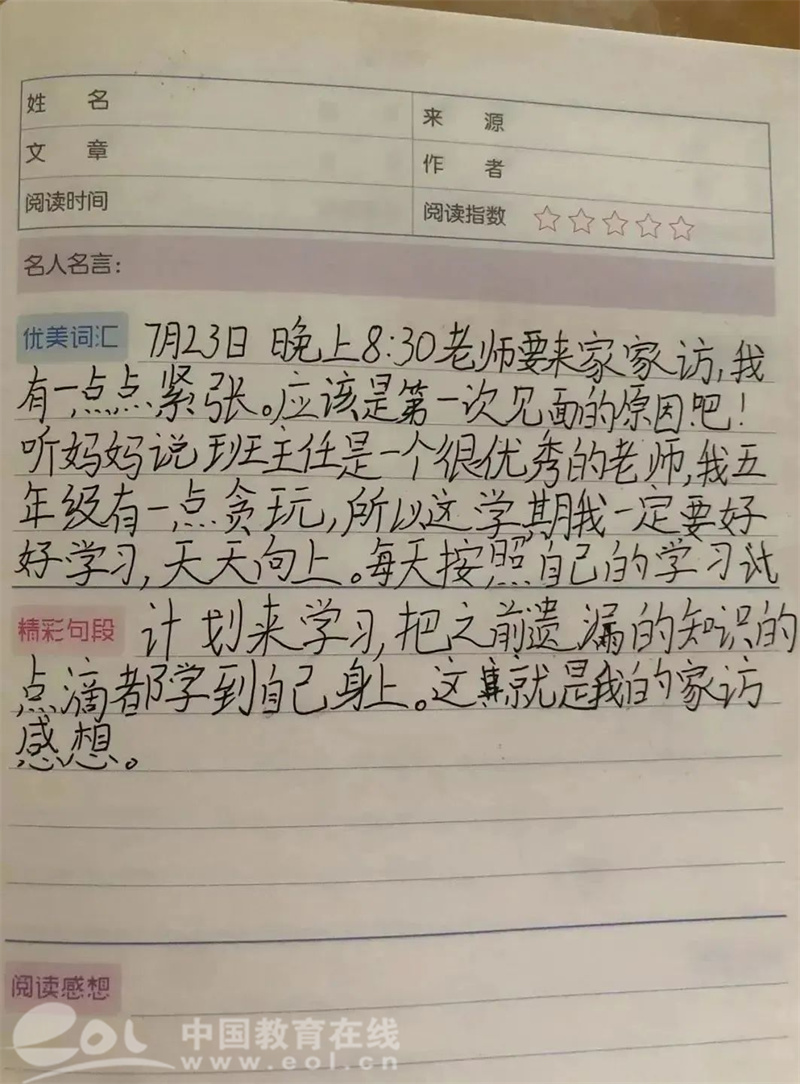 姓 名
来 源
文 章
作 者
阅读时间
阅读指数 ☆☆☆☆☆
名人名言：
优美词汇 7月23日 晚上8:30老师要来家家访,我
有一点点紧张。应该是第一次见面的原因吧！
听妈妈说班主任是一个很优秀的老师,我五
年级有一点贪玩,所以这学期我一定要好
好学习,天天向上。每天按照自己的学习
精彩句段 计划来学习,把之前遗漏的知识的
点滴都学到自己身上。这就是我的家访
感想。
阅读感想
eol 中国教育在线
www.eol.cn